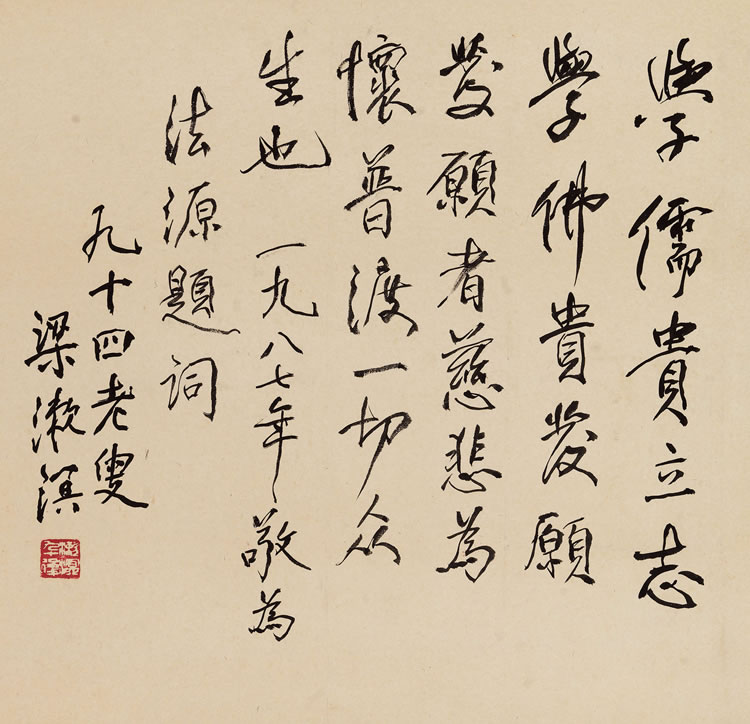 學儒貴立志
學佛貴發願
發願者慈悲為
懷普渡一切众
生也 一九八七年、敬為
法源題詞
九十四老叟
梁漱溟